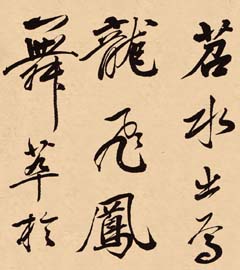 苕水出焉
龍飛鳳
舞萃於